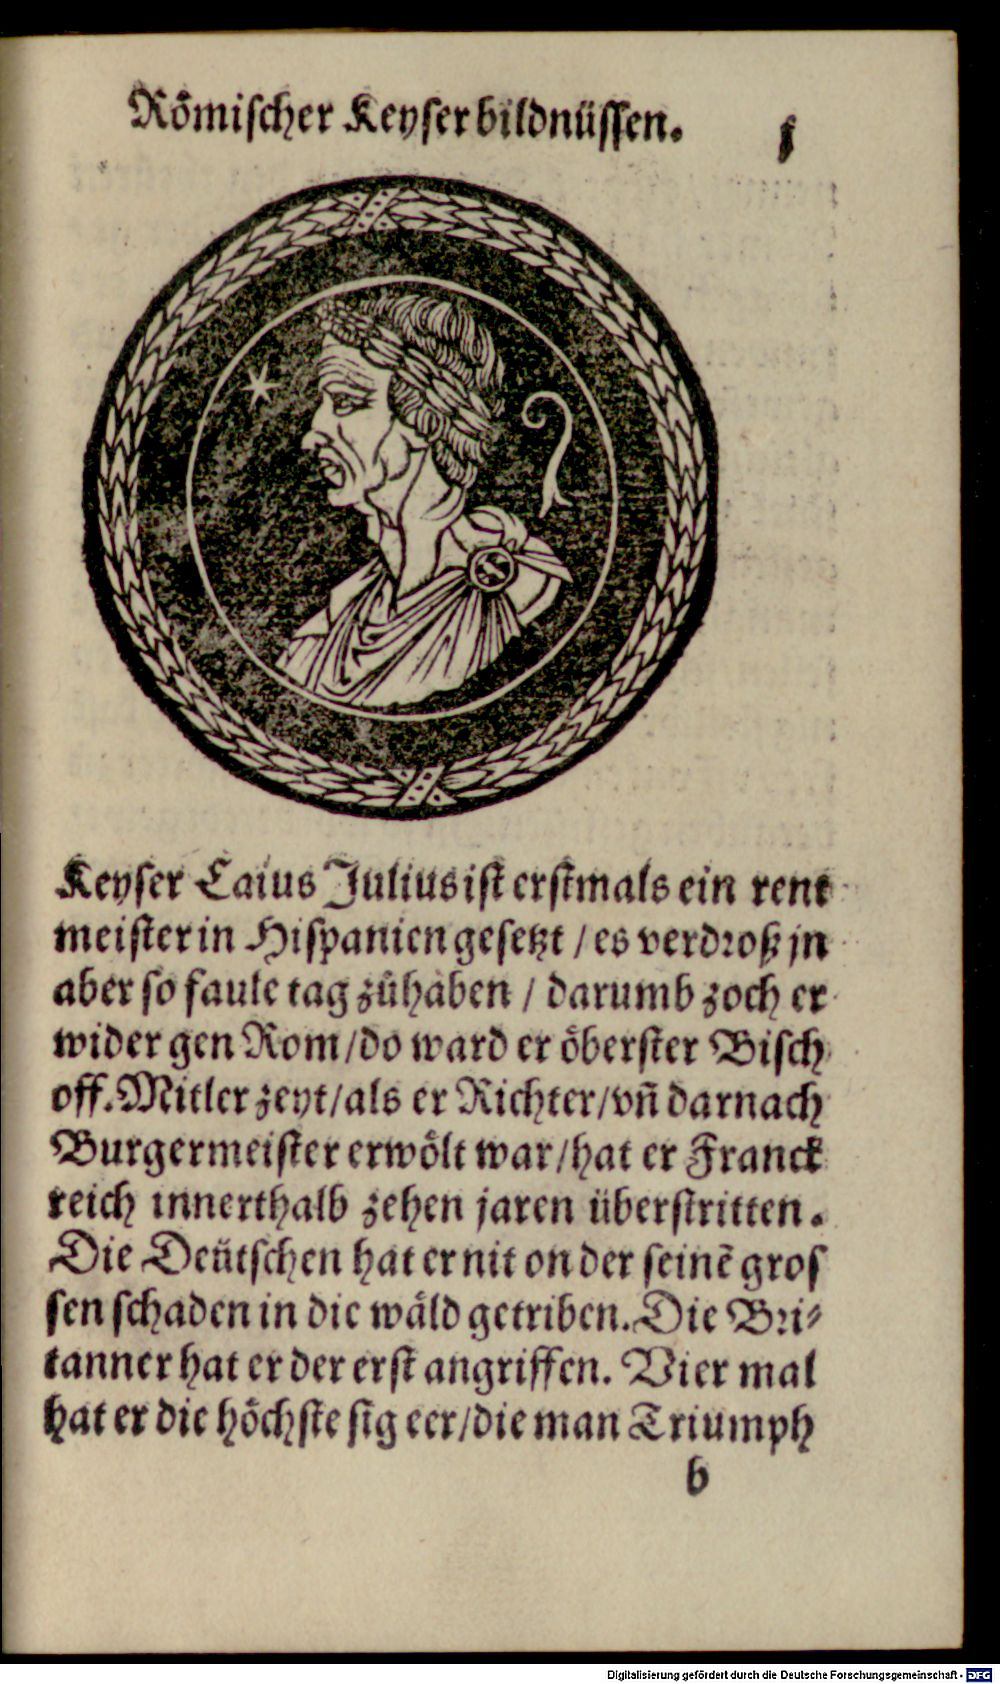 Roͤmiſcher Keyſer bildnuͤſſen.
j
Keyſer Caius Julius iſt erſtmals ein rent
meiſter in Hiſpanien geſetzt / es verdroß jn
aber ſo faule tag zuͦhaben / darumb zoch er
wider gen Rom / do ward er oͤberſter Biſch
off. Mitler zeyt / als er Richter / vñ darnach
Burgermeiſter erwoͤlt war / hat er Franck
reich innerthalb zehen jaren uͤberſtritten.
Die Deuͤtſchen hat er nit on der ſeinẽ groſ
ſen ſchaden in die waͤld getriben. Die Bri⸗
tanner hat er der erſt angriffen. Vier mal
hat er die hoͤchſte ſig eer / die man Triumph
b
Digitalisierung gefördert durch die Deutsche Forschungsgemeinschaft - DFG